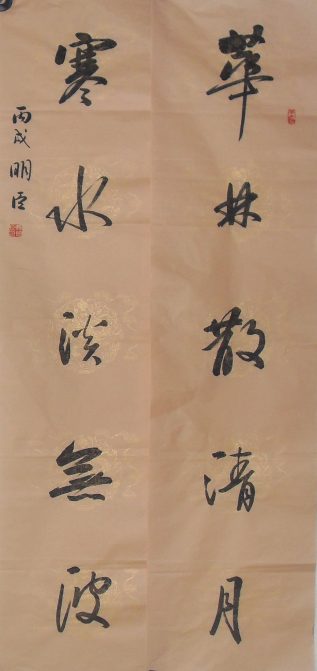 華林散清月
寒水淡無波
丙戌明臣